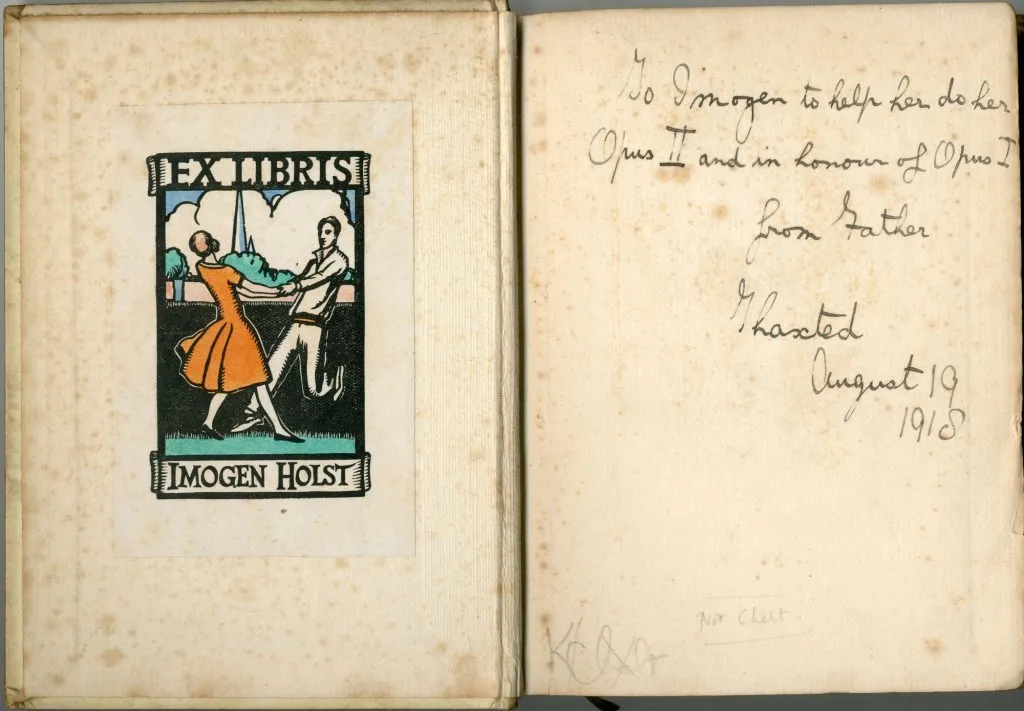 EX LIBRIS
IMOGEN HOLST
To Imogen to help her do her
Opus II and in honour of Opus I
from Father
Thaxted
August 19
1918